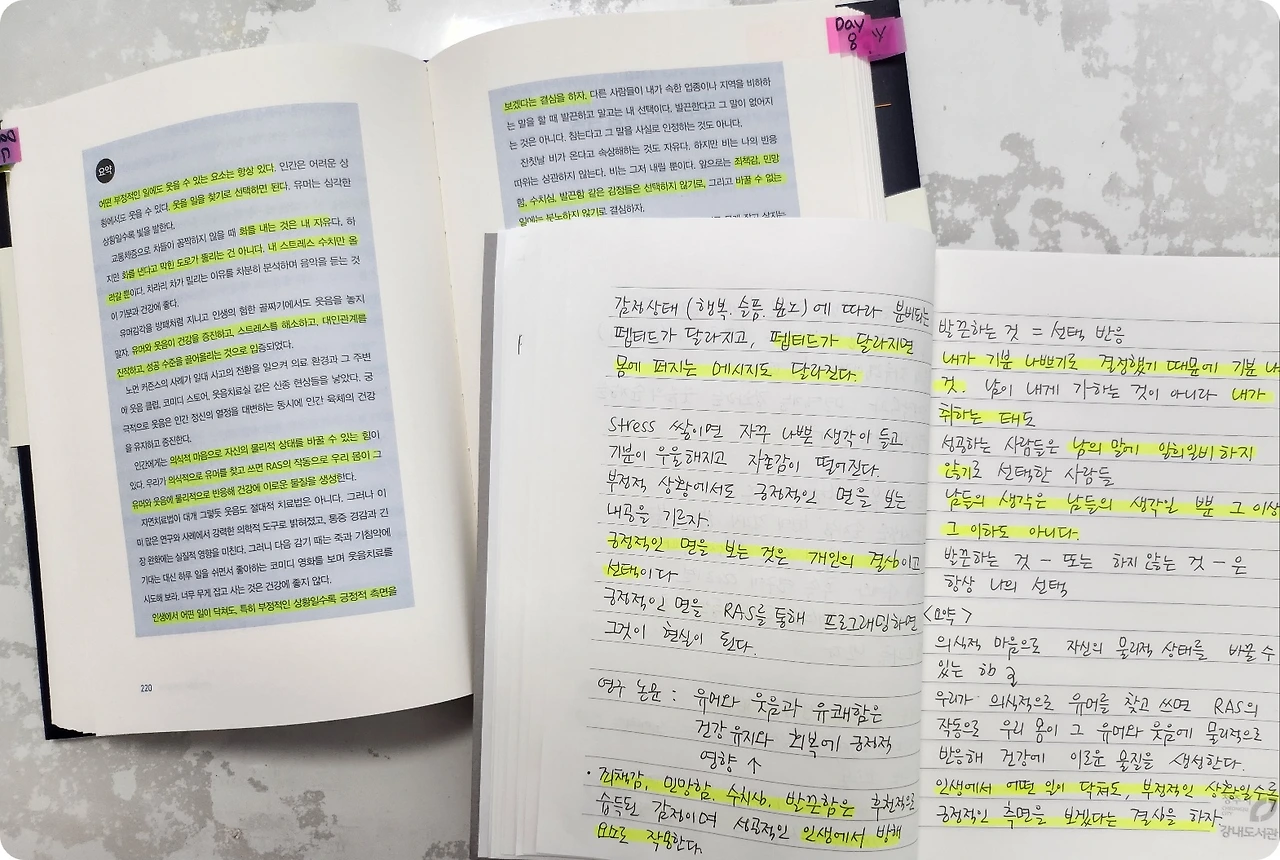 Day
8
요약
어떤 부정적인 일에도 웃을 수 있는 요소는 항상 있다. 인간은 어려운 상
황에서도 웃을 수 있다. 웃을 일을 찾기로 선택하면 된다. 유머는 심각한
상황일수록 빛을 발한다.
교통체증으로 차들이 꼼짝하지 않을 때 화를 내는 것은 내 자유다. 하
지만 화를 낸다고 막힌 도로가 뚫리는 건 아니다. 내 스트레스 수치만 올
라갈 뿐이다. 차라리 차가 밀리는 이유를 차분히 분석하며 음악을 듣는 것
이 기분과 건강에 좋다.
유머감각을 방패처럼 지니고 인생의 험한 골짜기에서도 웃음을 놓지
말자. 유머와 웃음이 건강을 증진하고, 스트레스를 해소하고, 대인관계를
진작하고, 성공 수준을 끌어올리는 것으로 입증되었다.
노먼 커즌스의 사례가 일대 사고의 전환을 일으켜 의료 환경과 그 주변
에 웃음 클럽, 코미디 스토어, 웃음치료실 같은 신종 현상들을 낳았다. 궁
극적으로 웃음은 인간 정신의 열정을 대변하는 동시에 인간 육체의 건강
을 유지하고 증진한다.
인간에게는 의식적 마음으로 자신의 물리적 상태를 바꿀 수 있는 힘이
있다. 우리가 의식적으로 유머를 찾고 쓰면 RAS의 작동으로 우리 몸이 그
유머와 웃음에 물리적으로 반응해 건강에 이로운 물질을 생성한다.
자연치료법이 대개 그렇듯 웃음도 절대적 치료법은 아니다. 그러나 이
미 많은 연구와 사례에서 강력한 의학적 도구로 밝혀졌고, 통증 경감과 긴
장 완화에는 실질적 영향을 미친다. 그러니 다음 감기 때는 축 처져 기침약에
기대는 대신 하루 일을 쉬면서 좋아하는 코미디 영화를 보며 웃음치료를
시도해 보라. 너무 무게 잡고 사는 것은 건강에 좋지 않다.
인생에서 어떤 일이 닥쳐도, 특히 부정적인 상황일수록 긍정적 측면을
220
보겠다는 결심을 하자. 다른 사람들이 내가 속한 업종이나 지역을 비하하
는 말을 할 때 발끈하고 말고는 내 선택이다. 발끈한다고 그 말이 없어지
는 것은 아니다. 참는다고 그 말을 사실로 인정하는 것도 아니다.
잔칫날 비가 온다고 속상해하는 것도 자유다. 하지만 비는 나의 반응
따위는 상관하지 않는다. 비는 그저 내릴 뿐이다. 앞으로는 죄책감, 민망
함, 수치심, 발끈함 같은 감정들은 선택하지 않기로, 그리고 바꿀 수 없는
일에는 분노하지 않기로 결심하자.
감정상태 (행복, 슬픔, 분노)에 따라 분비되는
펩티드가 달라지고, 펩티드가 달라지면
몸에 퍼지는 메시지도 달라진다.
Stress 쌓이면 자꾸 나쁜 생각이 들고
기분이 우울해지고 자존감이 떨어진다.
부정적 상황에서도 긍정적인 면을 보는
내공을 기르자.
긍정적인 면을 보는 것은 개인의 결심이고
선택이다
긍정적인 면을 RAS를 통해 프로그래밍하면
그것이 현실이 된다.
연구 논문 : 유머와 웃음과 유쾌함은
건강 유지와 회복에 긍정적
영향 ↑
• 죄책감, 민망함, 수치심, 발끈함은 후천적으로
습득된 감정이며 성공적인 인생에서 방해
요으로 작용한다.
발끈하는 것 = 선택 반응
내가 기분 나쁘기로 결정했기 때문에 기분 나
것. 남이 내게 가하는 것이 아니라 내가
취하는 태도
성공하는 사람들은 남의 말에 일희일비 하지
않기로 선택한 사람들
남들의 생각은 남들의 생각일 뿐 그 이상
그 이하도 아니다.
발끈하는 것 - 또는 하지 않는 것 - 은
항상 나의 선택
<요약>
의식적 마음으로 자신의 물리적 상태를 바꿀 수
있는 힘
우리가 의식적으로 유머를 찾고 쓰면 RAS의
작동으로 우리 몸이 그 유머와 웃음에 물리적으로
반응해 건강에 이로운 물질을 생성한다.
인생에서 어떤 일이 닥쳐도, 부정적인 상황일수록
긍정적인 측면을 보겠다는 결심을 하자.
강내도서관